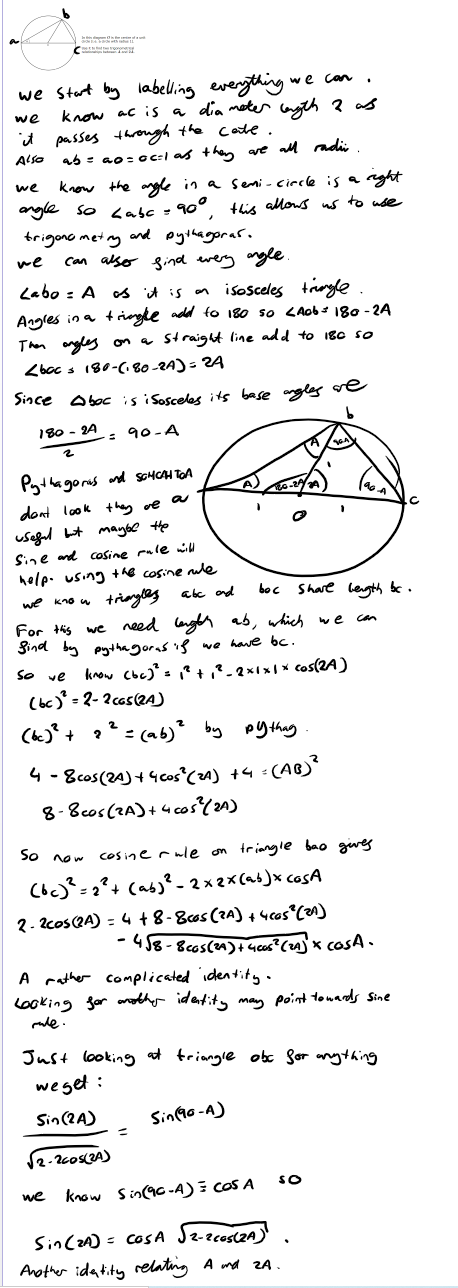 b
a
c
In this diagram O is the centre of a unit
circle (i.e. a circle with radius 1).
Use it to find two trigonometrical
relationships between A and 2A.
we start by labelling everything we can.
we know ac is a diameter length 2 as
it passes through the
Also ab = ao = oc = 1 as they are all radii.
we know the angle in a semi-circle is a right
angle so ∠abc = 90°, this allows us to use
trigonometry and pythagoras.
we can also find every angle.
∠abo = A as it is an isosceles triangle.
Angles in a triangle add to 180 so ∠Aob = 180-2A
Then angles on a straight line add to 180 so
∠boc = 180-(180-2A) = 2A
Since △boc is isosceles its base angles are
180-2A / 2 = 90-A
b
A
90-A
A
180-2A
2A
90-A
c
1
1
1
O
Pythagoras and SOHCAHTOA
dont look they are a
useful but maybe the
sine and cosine rule will
help. using the cosine rule
we know triangles abc and boc share length bc.
For this we need length ab, which we can
find by pythagoras if we have bc.
So we know (bc)² = 1² + 1² - 2×1×1×cos(2A)
(bc)² = 2-2cos(2A)
(bc)² + 2² = (ab)² by pythag.
4 - 8cos(2A) + 4cos²(2A) + 4 = (AB)²
8-8cos(2A) + 4cos²(2A)
So now cosine rule on triangle bao gives
(bc)² = 2² + (ab)² - 2×2×(ab)×cosA
2-2cos(2A) = 4 + 8-8cos(2A) + 4cos²(2A)
- 4√(8-8cos(2A)+4cos²(2A)) × cosA.
A rather complicated identity.
Looking for another identity may point towards sine
rule.
Just looking at triangle obc for anything
we get:
sin(2A) / √(2-2cos(2A)) = sin(90-A)
we know sin(90-A) ≡ cosA so
sin(2A) = cosA √(2-2cos(2A)).
Another identity relating A and 2A.